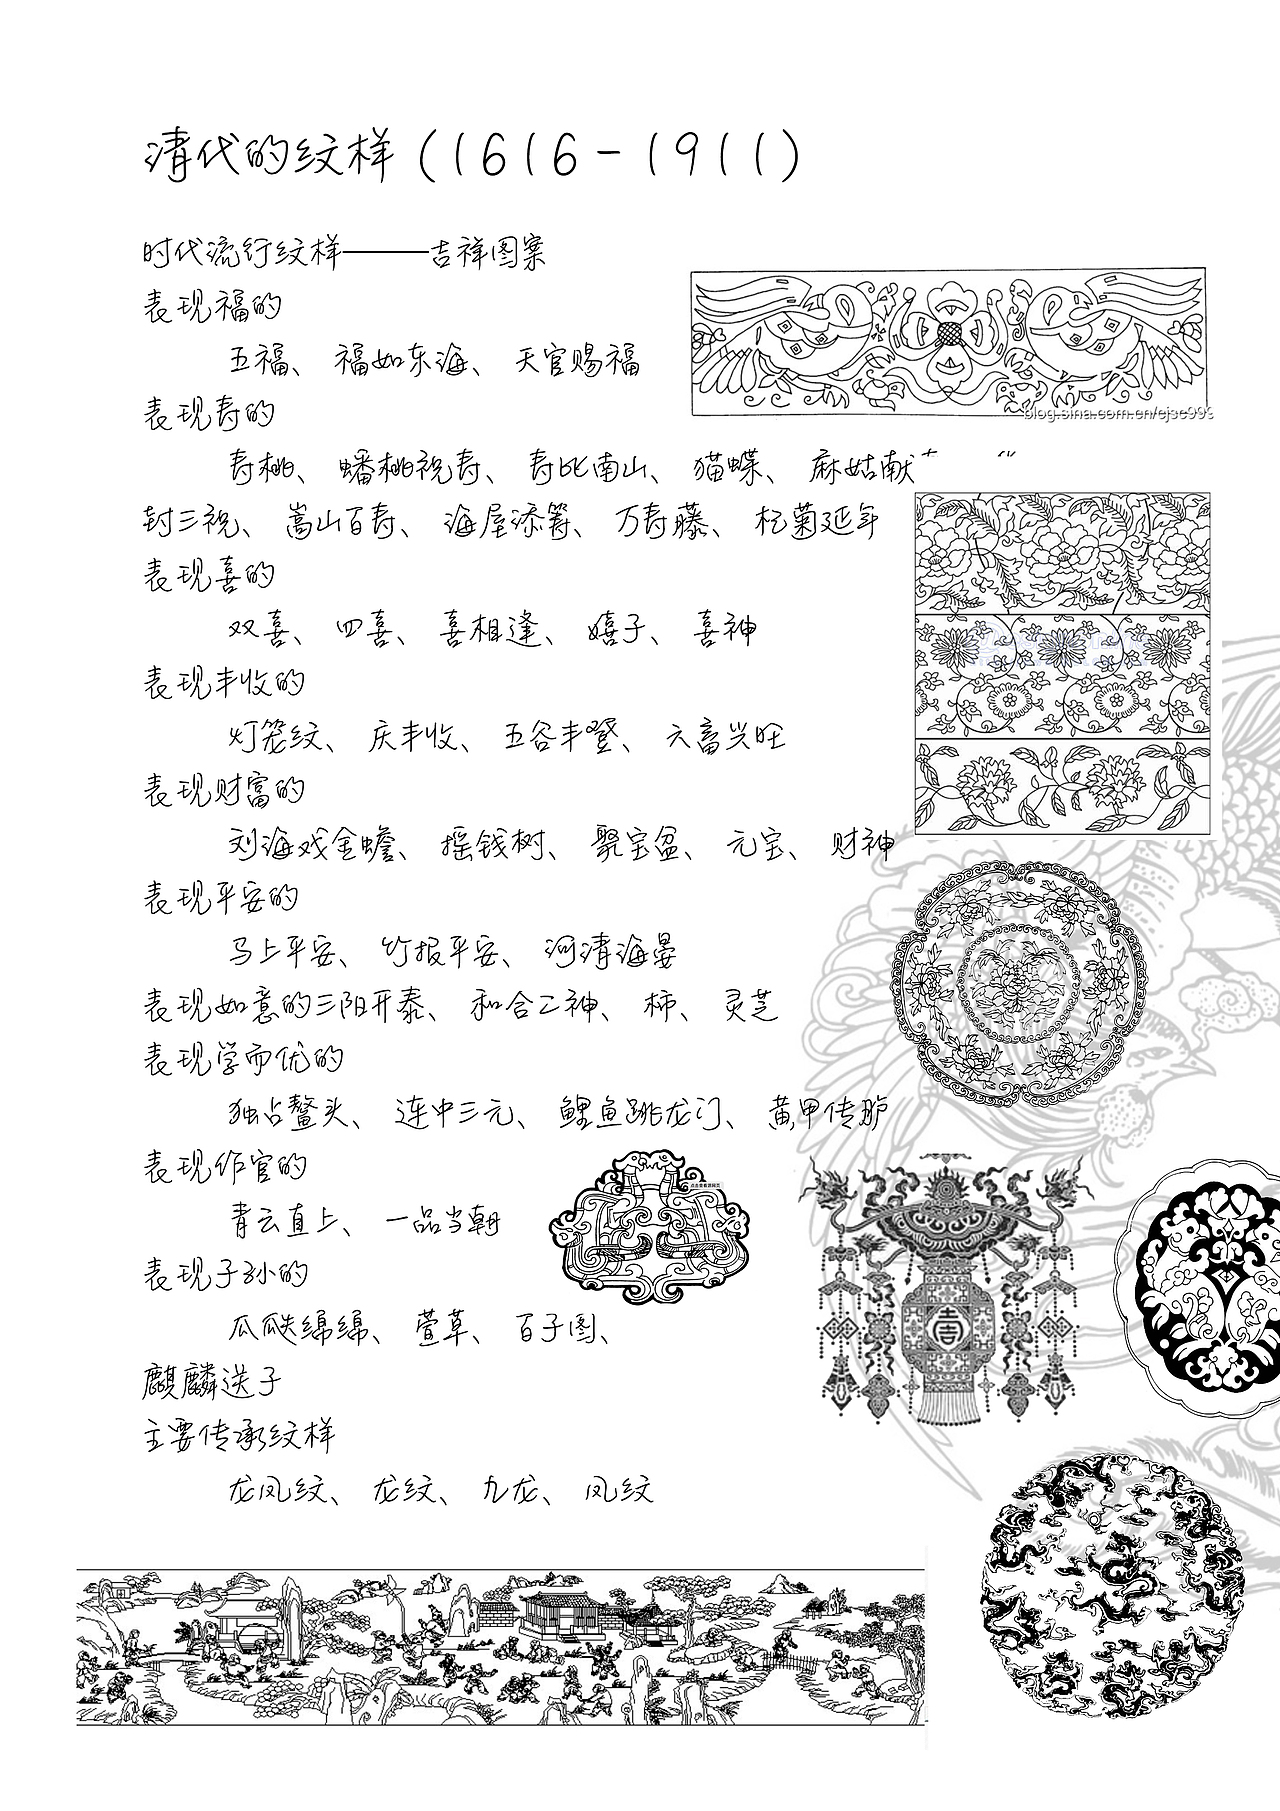 清代的纹样(1616-1911)
时代流行纹样———吉祥图案
表现福的
五福、 福如东海、 天官赐福
blog.sina.com.cn/ejsc999
表现寿的
寿桃、 蟠桃祝寿、 寿比南山、 猫蝶、 麻姑献
封三祝、 嵩山百寿、 海屋添筹、 万寿藤、 杞菊延年
表现喜的
双喜、 四喜、 喜相逢、 嬉子、 喜神
表现丰收的
灯笼纹、 庆丰收、 五谷丰登、 六畜兴旺
表现财富的
刘海戏金蟾、 摇钱树、 聚宝盆、 元宝、 财神
表现平安的
马上平安、 竹报平安、 河清海晏
表现如意的三阳开泰、 和合二神、 柿、 灵芝
表现学而优的
独占鳌头、 连中三元、 鲤鱼跳龙门、 黄甲传胪
表现作官的
点击查看源网页
青云直上、 一品当朝
表现子孙的
瓜瓞绵绵、 萱草、 百子图、
麒麟送子
主要传承纹样
龙凤纹、 龙纹、 九龙、 凤纹